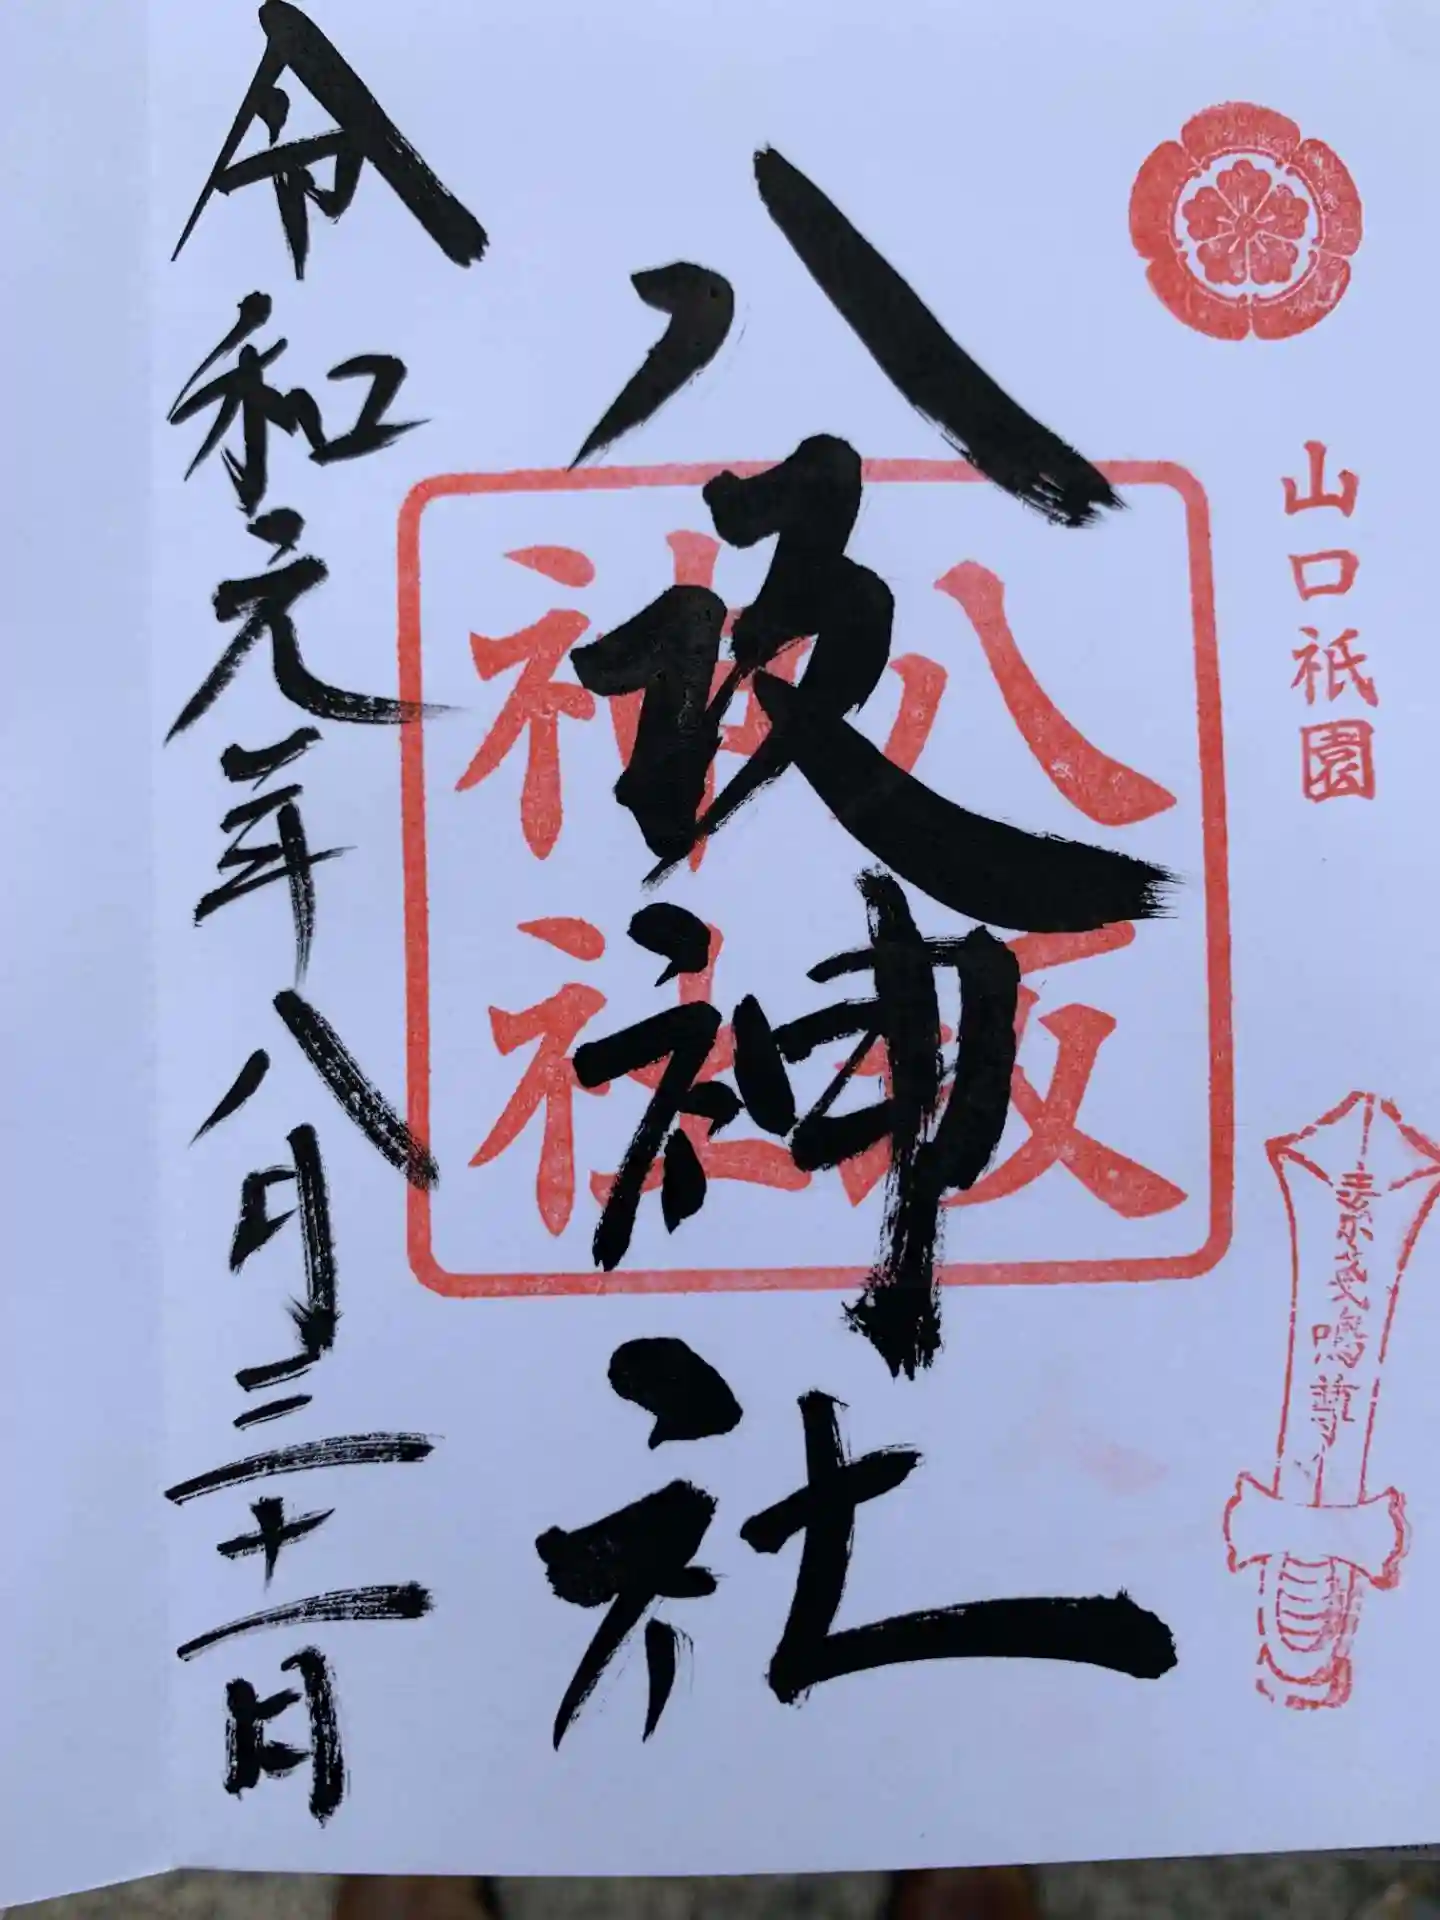 山口祇園
素戔嗚尊
八坂神社
八坂
神社
令和元年八月三十一日